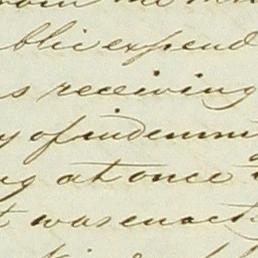 blic expend
s receiving
y of indemni
ng at once
t was enact